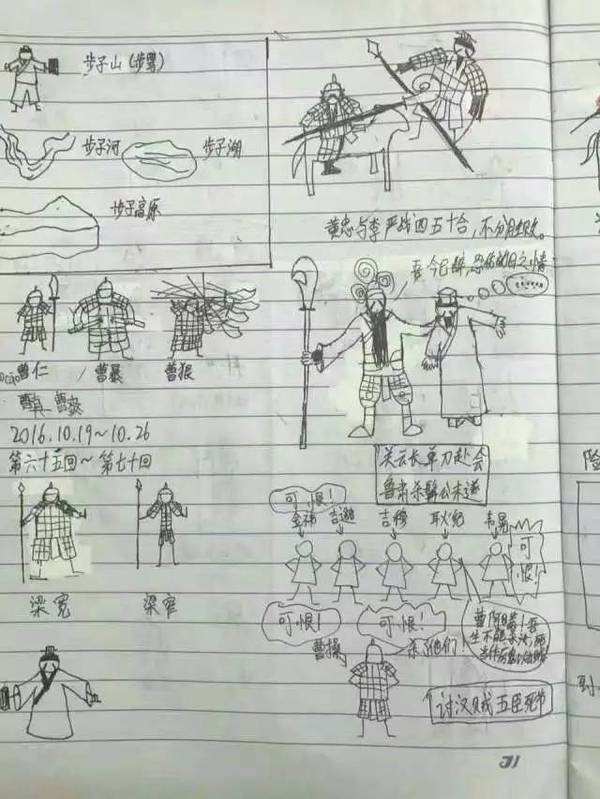 步子山（步骘）
步子河
步子湖
步子高原
黄忠与李严战四五十合，不分胜负。
吾今已醉，恐伤故旧之情
曹仁
曹暴
曹狠
2016.10.19～10.26
第六十五回～第七十回
关云长单刀赴会
鲁肃杀羽公未遂
可恨！
金祎
吉邈
吉穆
耿纪
韦晃
可恨！
梁宽
梁窄
可恨！
可恨！
曹操
杀了他们！
曹阿瞒！吾
生不能杀汝，死
当作厉鬼以击贼
讨汉贼五臣死节
31